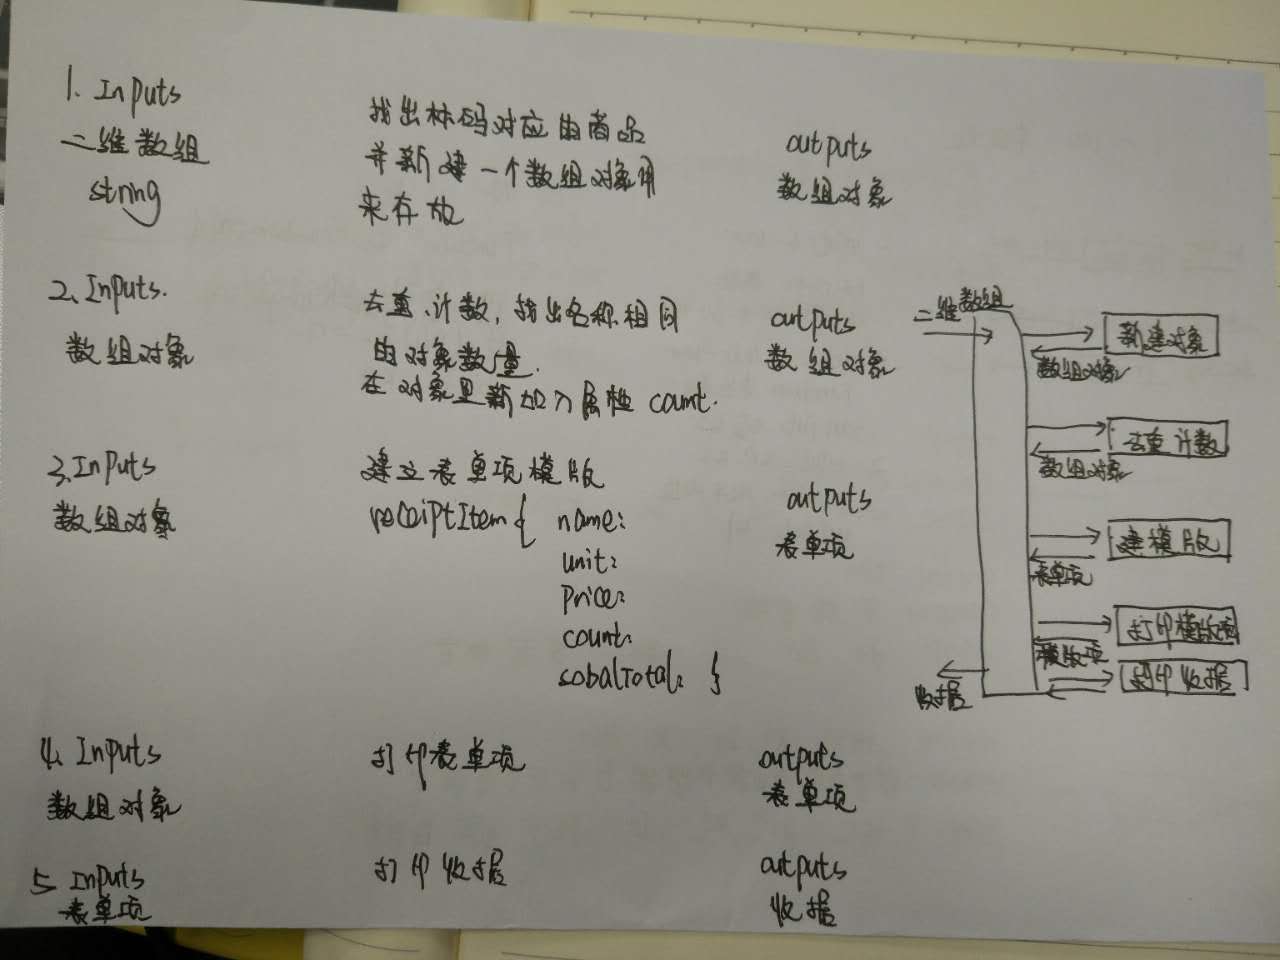 1. Inputs
二维数组
string
找出标码对应的商品
并新建一个数组对象用
来存放
outputs
数组对象
2. Inputs.
数组对象
去重、计数，找出名称相同
的对象数量.
在对象里新加入属性 count.
outputs
数组对象
3. Inputs
数组对象
建立表单项模版
receiptItem{ name:
unit:
price:
count:
sobalTotal: }
outputs
表单项
4. Inputs
数组对象
打印表单项
outputs
表单项
5. Inputs
表单项
打印收据
outputs
收据
二维数组
新建对象
数组对象
去重计数
数组对象
建模版
表单项
打印模版项
模版项
打印收据
收据